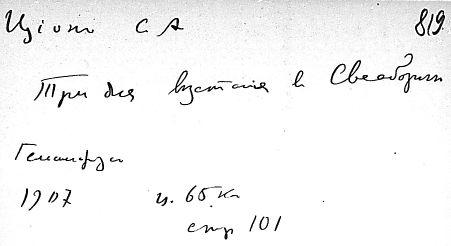 Цион С А 819
Три дня восстания в Свеаборге
Гельсингфорс
1907 ц. 65 к
стр 101